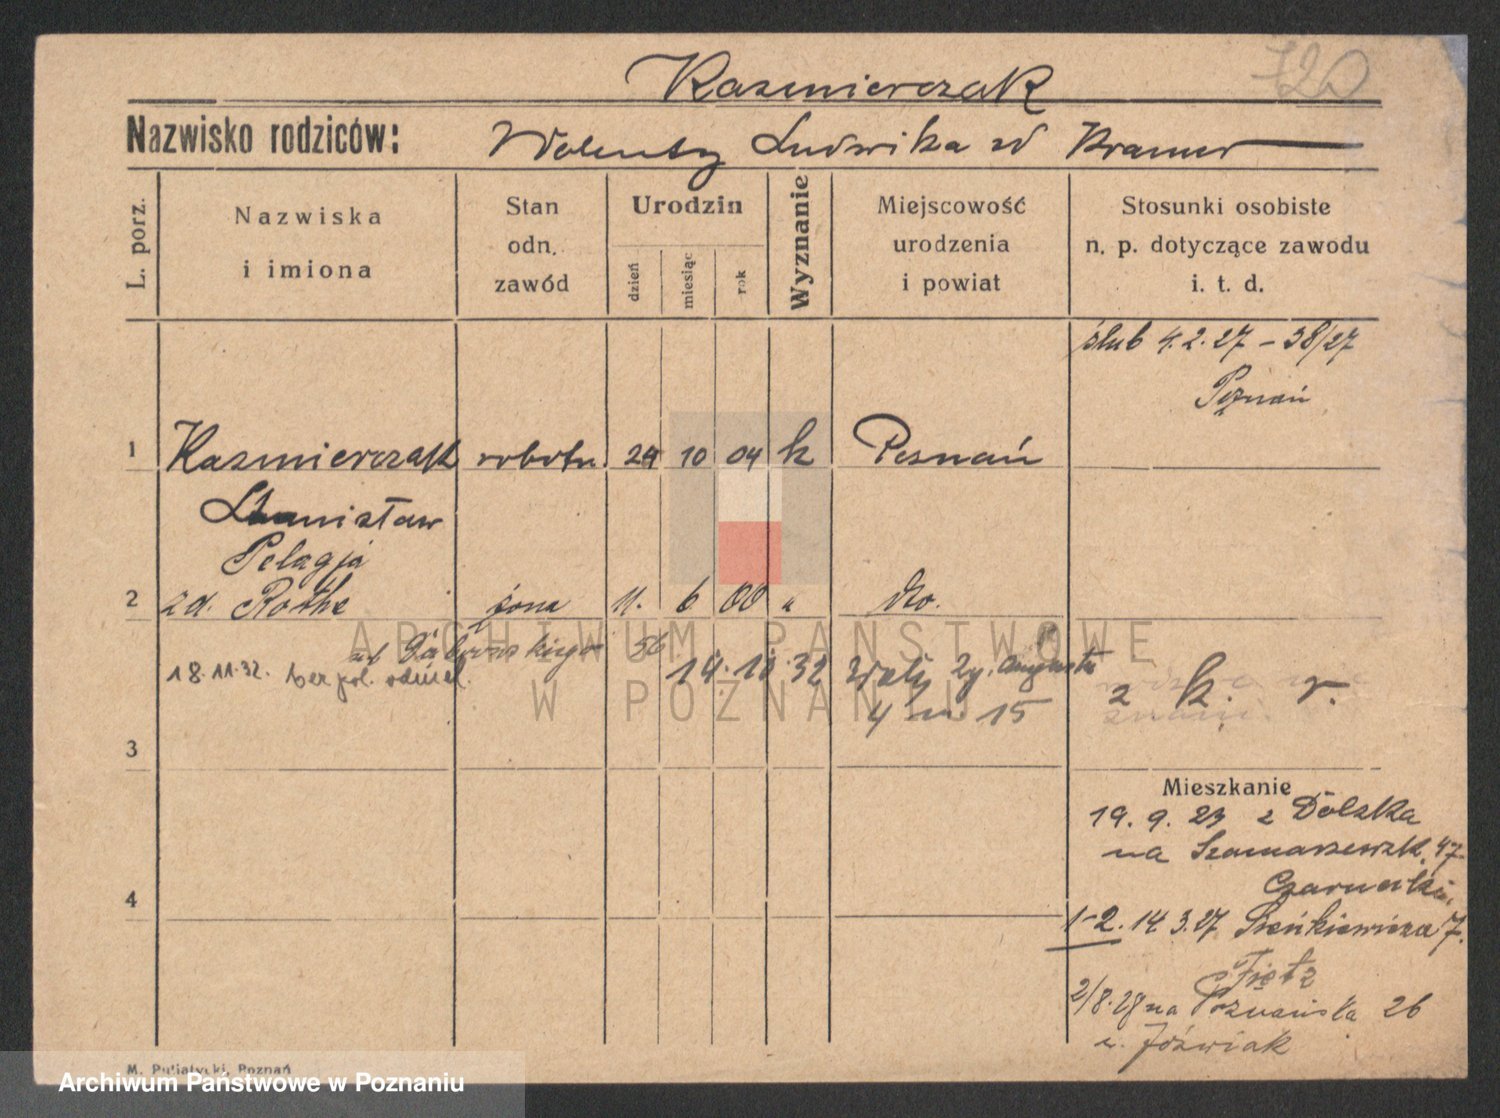 720
Kazmierczak
Nazwisko rodziców: Walenty Ludwika zd Kramer
L. porz.
Nazwiska i imiona
Stan odn. zawód
Urodzin
dzień
miesiąc
rok
Wyznanie
Miejscowość urodzenia i powiat
Stosunki osobiste n. p. dotyczące zawodu i. t. d.
ślub 4.2.27 – 38/27
Poznań
1 Kazmierczak robotn. 24 10 04 k Poznań
Stanisław
Pelagja
2 zd. Rothe żona 11. 6 00 " dto.
18.11.32. bez pol.
14.10.32 Wały Zyg. Augusta
4 m. 15
z k. r.
3
Mieszkanie
19. 9. 23 z Dolzka
na Szamarzewsk. 47
4
1-2. 14.3.27 Sienkiewicza 7.
2/8.28 na Poznańska 26
u. Jóźwiak
M. Puljatycki, Poznań
ARCHIWUM PAŃSTWOWE
W POZNANIU
Archiwum Państwowe w Poznaniu